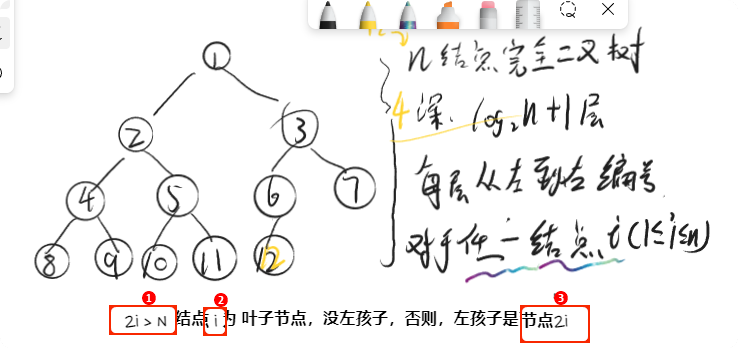 1
2
3
4
5
6
7
8
9
10
11
12
n结点完全二叉树
4
深 log₂n+1层
每层从左到右编号
对于任一结点i(1≤i≤n)
1
2
3
2i > N 结点 i 为 叶子节点，没左孩子，否则，左孩子是 节点2i